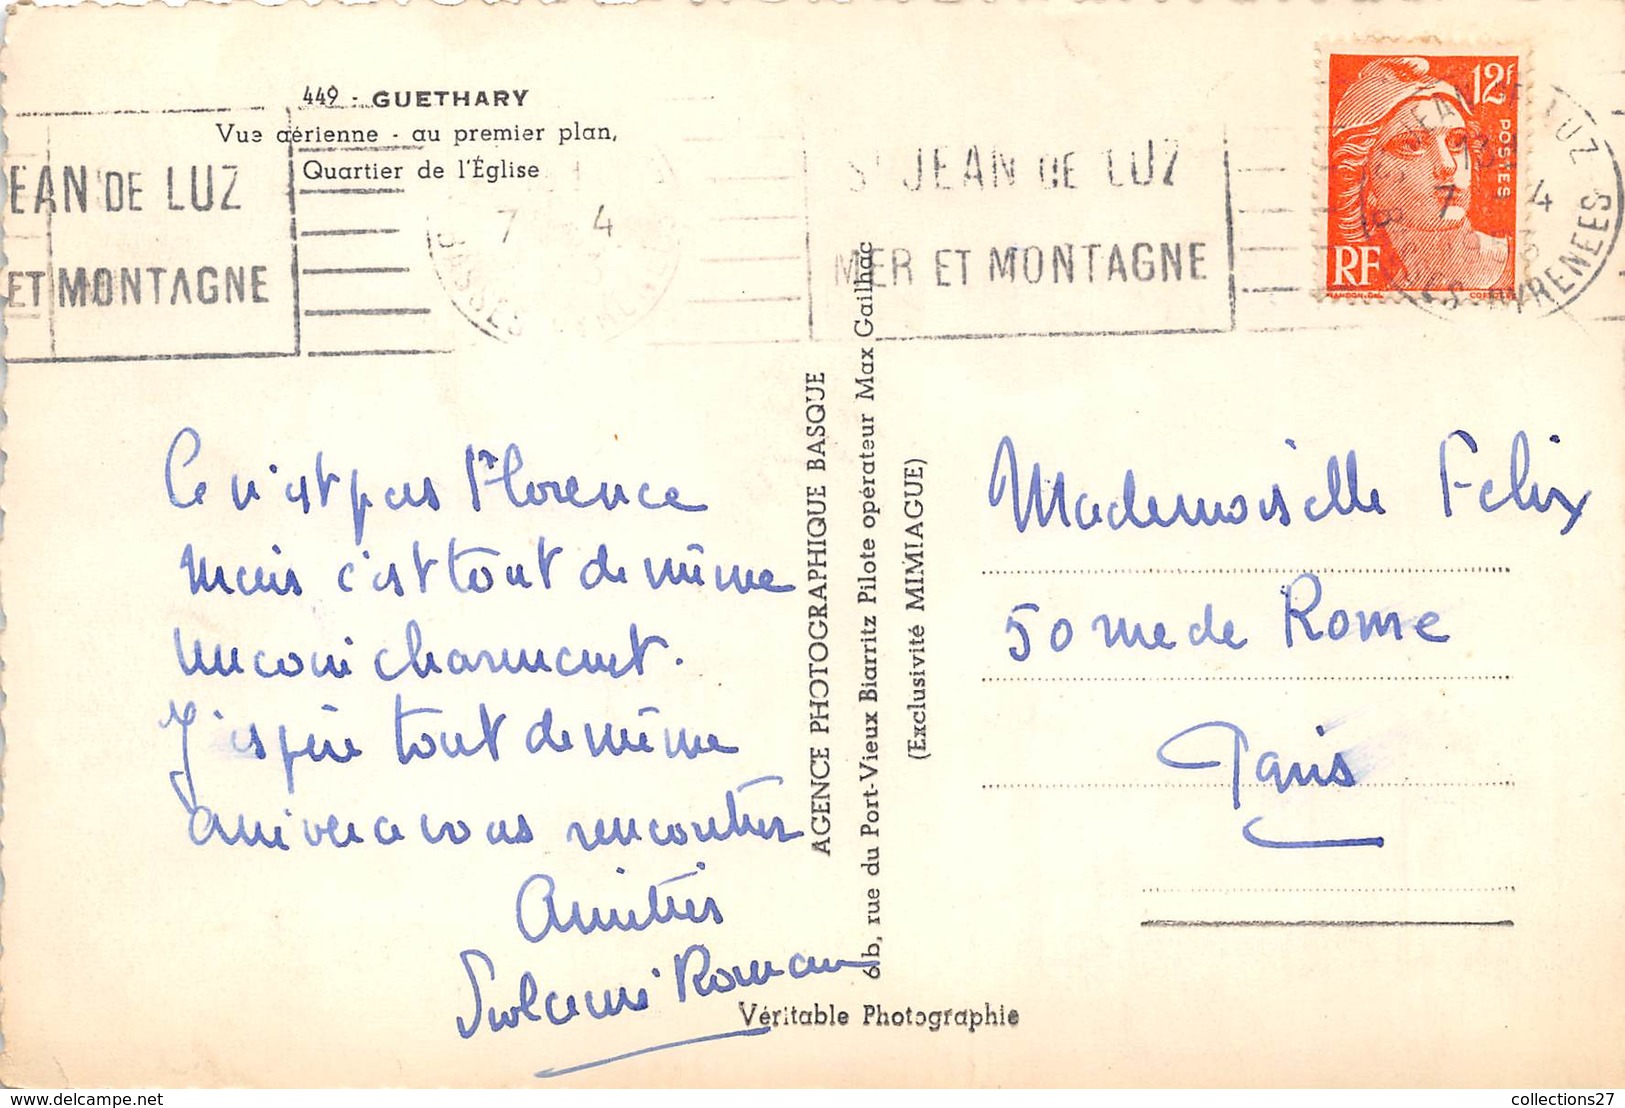 449 - GUETHARY
Vue aérienne - au premier plan,
Quartier de l'Église
EAN DE LUZ
ET MONTAGNE
7 4
BASSES PYRENEES
St JEAN DE LUZ
MER ET MONTAGNE
12F
POSTES
RF
7 4
St JEAN DE LUZ
BASSES PYRENEES
Ce n'est pas Florence
Mais c'est tout de même
un coin charmant.
J'espère tout de même
arriver a vous rencontrer
Amitiés
Roman
AGENCE PHOTOGRAPHIQUE BASQUE
6 b, rue du Port-Vieux Biarritz Pilote opérateur Max Gailhac
(Exclusivité MIMIAGUE)
Véritable Photographie
Mademoiselle Felix
50 rue de Rome
Paris
collections27